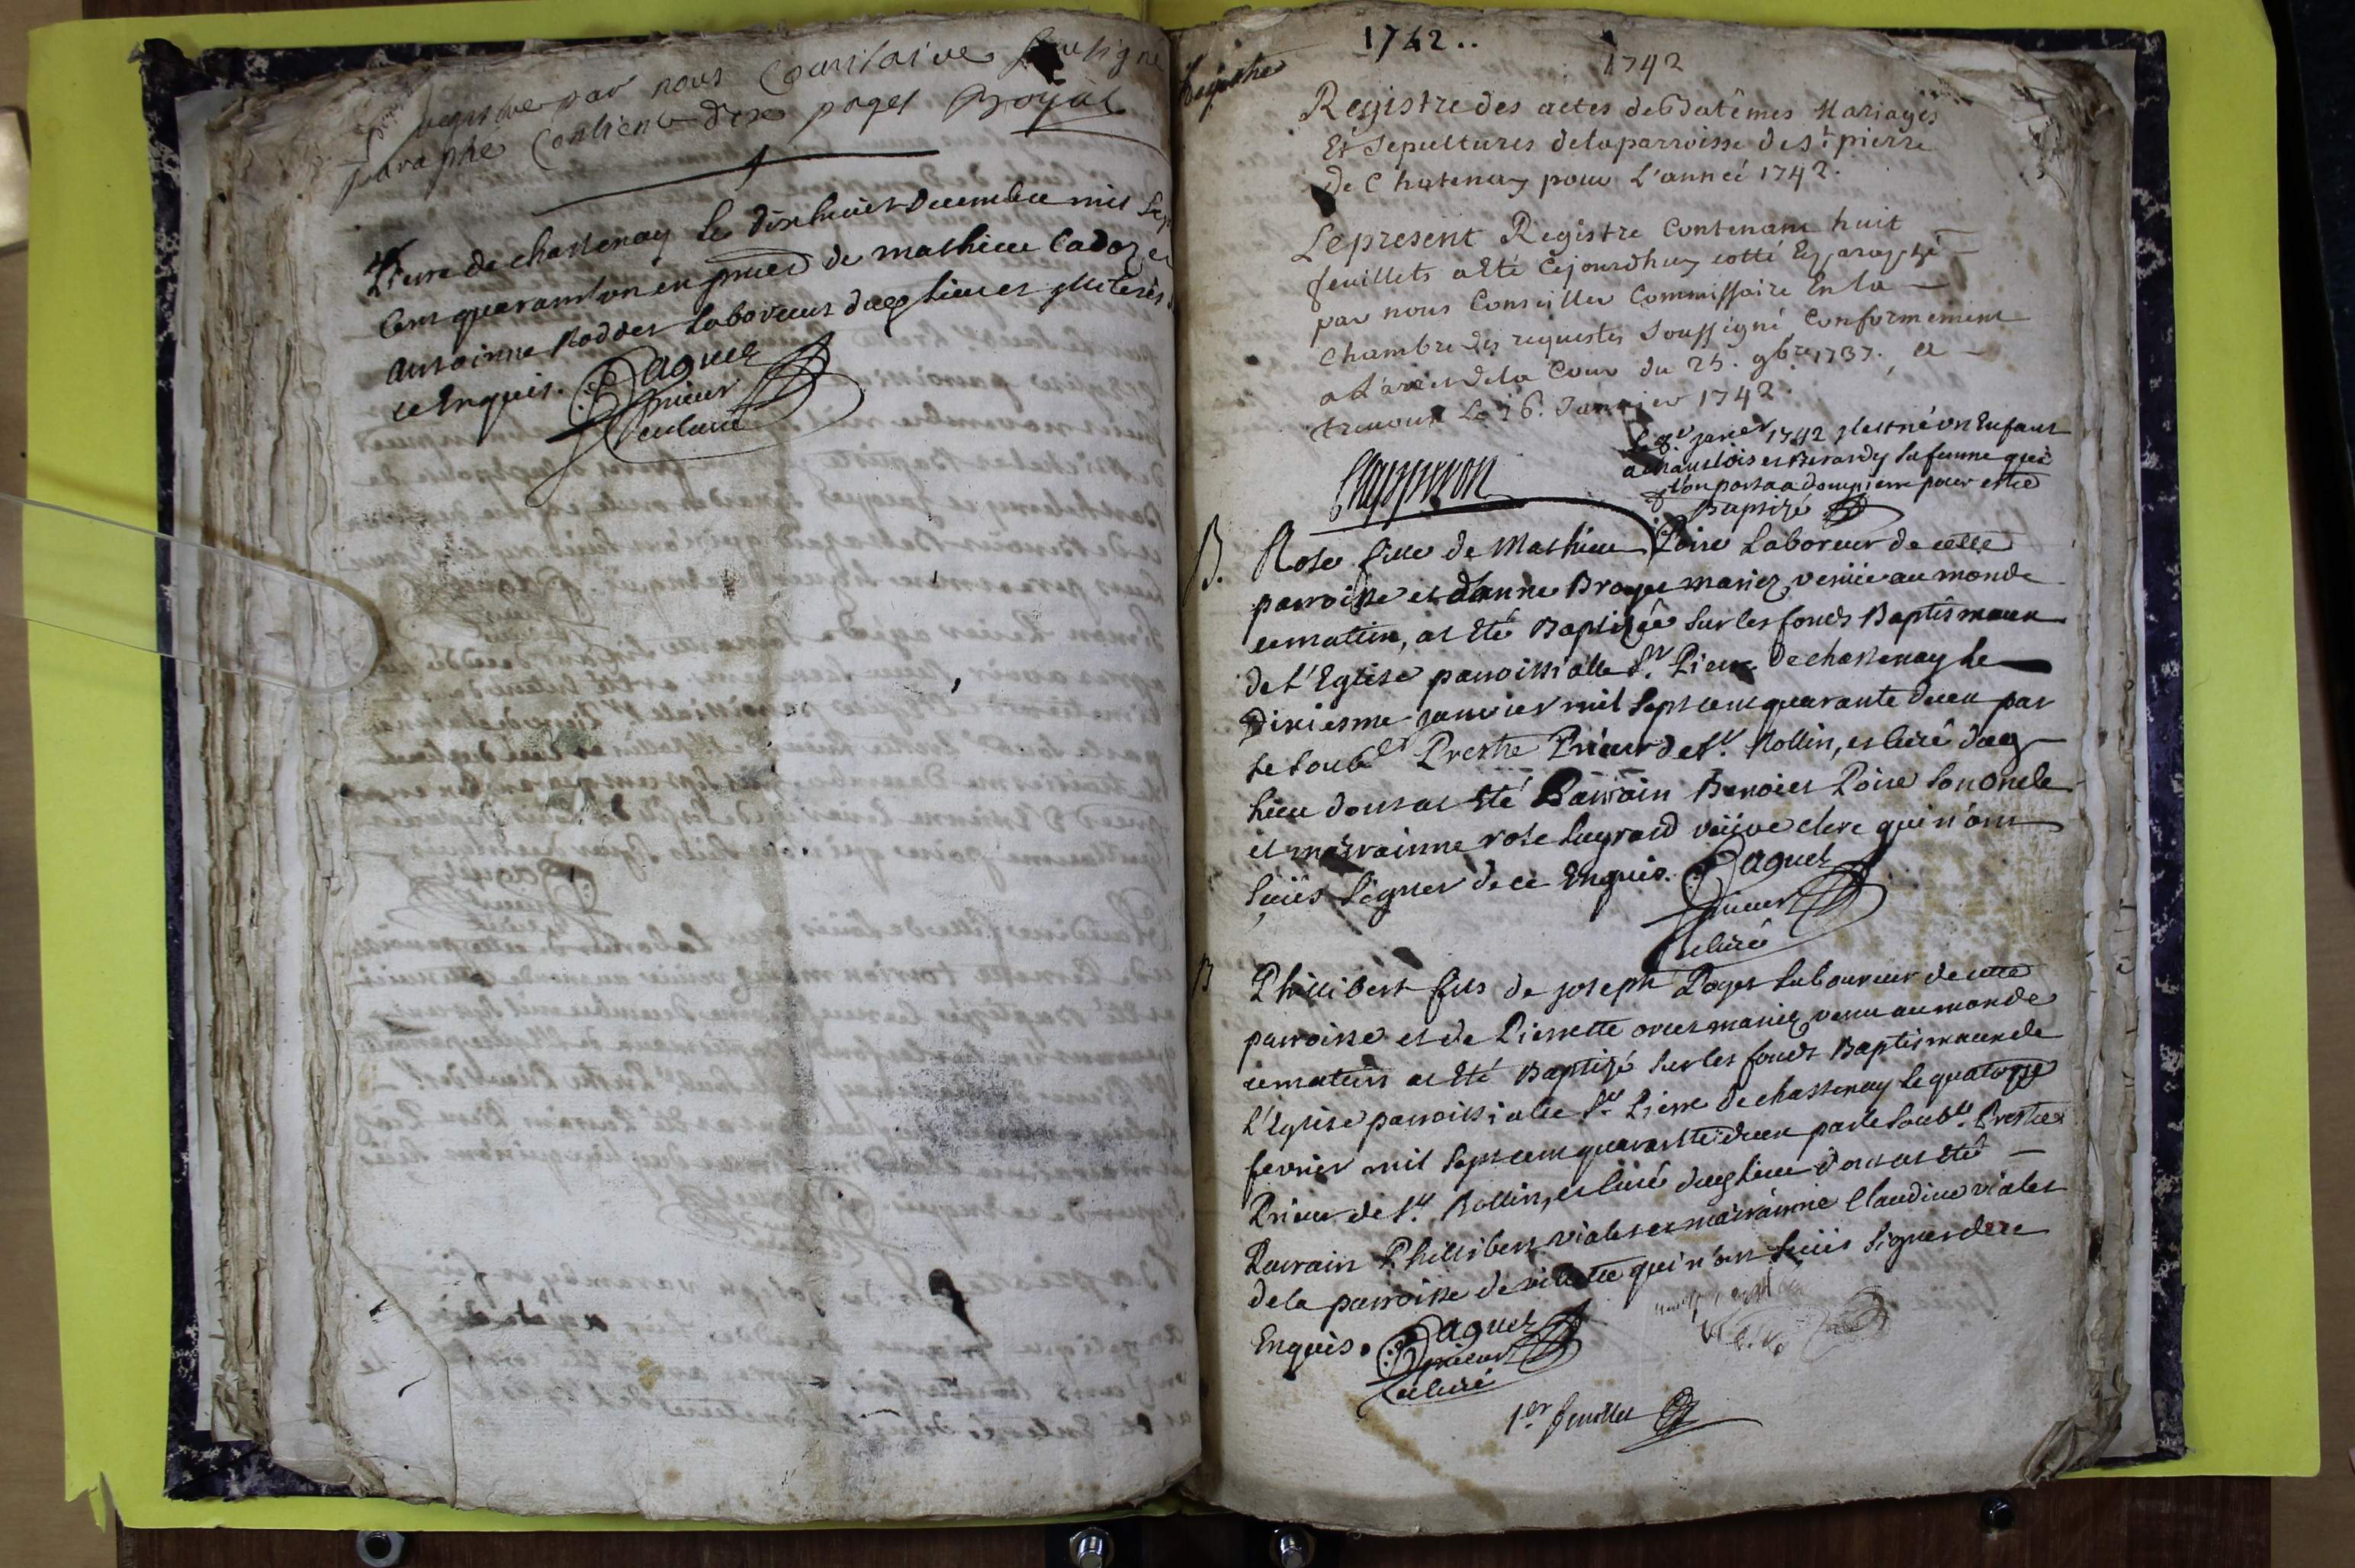 registre par nous Commissaire Soussigné
paraphé Contient dix pages Boyat
Pierre de chastenay le dixhuict decembre mil Sept
Cens quarant un en pnce de mathieu Cadoz et
Antoinne Roddet Laboreurs dug lieu et illiterés
ce Enquis. Paguet
prieur
et curé
Registre
1742..
1742
Registre des actes de Batêmes Mariages
Et Sepultures de la parroisse de St pierre
de Chatenay pour L'anneé 1742.
Le present Registre Contenant huit
feuillets a Eté cejourdhuy cotté Et paraphé
par nous Conseiller Commissaire En la
Chambre des requestes Soussigné Conformement
a L'arrêt de la Cour du 25. 9bre 1737., a
trevoux Le 16. Janvier 1742.
Le 8e janer 1742 il est né un Enfant
a et Berardy sa femme que
l'on porta a dompierre pour estre
Baptizé
B. Rose fille de Mathieu Poire Laboreur de cette
parroisse et d'anne Broyer mariez, venüe au monde
ce mattin, at Eté Baptizée Sur les fonds Baptismaux
de L'Eglise parroissialle St. Pierre de chastenay le
Dixiesme janvier mil Sept cent quarante deux par
le Soubé Prestre Prieur de St. Rollin, et curé dug
lieu dont at Eté Parrain Benoict Poire Son oncle
et marrainne rose Lugrand veüve clerc qui n'ont
Sçüs Signer de ce Enquis. Paguet
prieur
et curé
B Phillibert fils de joseph Poget Laboureur de cette
parroisse et de Pierrette mariez, venu au monde
ce matein at Eté Baptizé Sur les fonds Baptismaux de
L'Eglise parroissialle St. Pierre de chastenay le quatorze
fevrier mil Sept cent quarante deux par le Soubé. Prestre
Prieur de St. Rollin, et curé dug lieu dont at Eté
Parrain Phillibert violet et marrainne Claudine violet
de la parroisse de villette qui n'ont Sçüs Signer de ce
Enquis. Paguet
prieur
et curé
1er feuillet